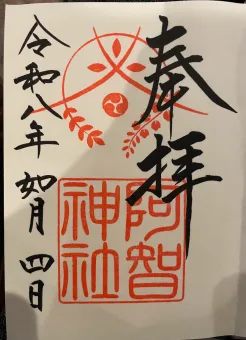 奉拝
阿智
神社
令和八年 如月 四日